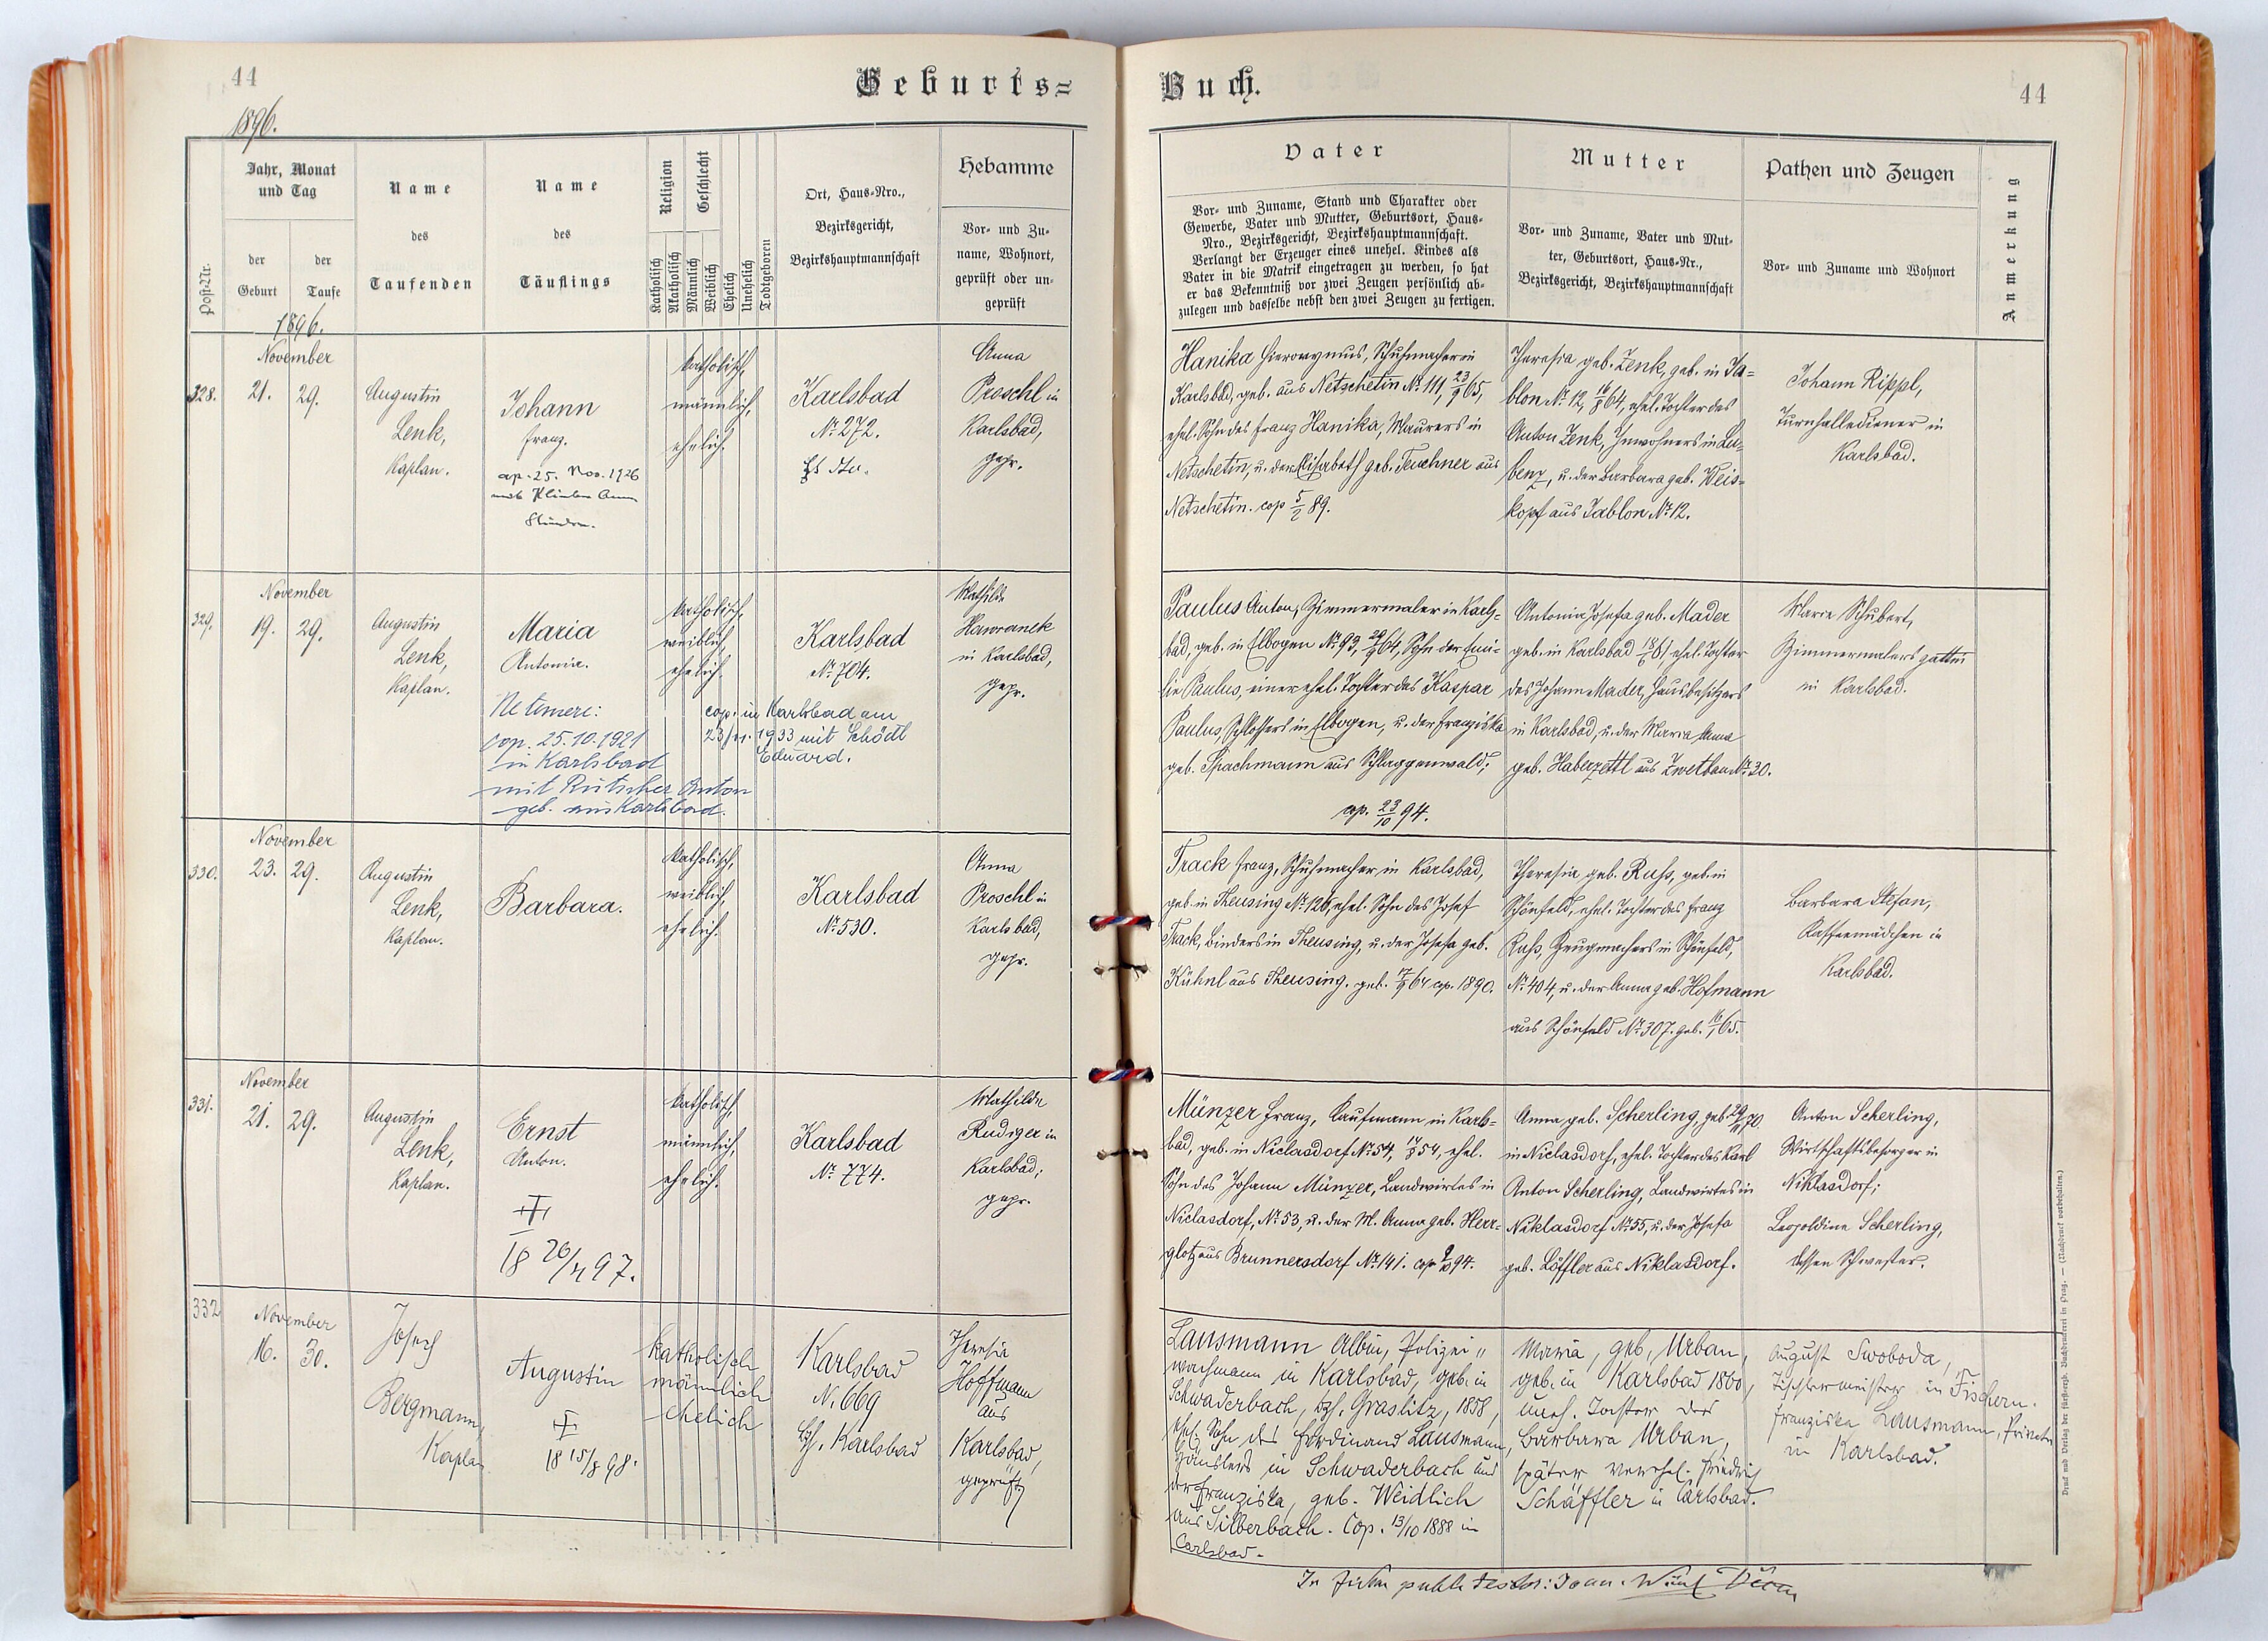 44
Geburts=
1896.
Post-Nr.
Jahr, Monat
und Tag
der
Geburt
der
Taufe
Name
des
Taufenden
Name
des
Täuflings
Religion
Katholisch
Akatholisch
Geschlecht
Männlich
Weiblich
Ehelich
Unehelich
Todtgeboren
Ort, Haus-Nro.,
Bezirksgericht,
Bezirkshauptmannschaft
Hebamme
Vor- und Zu-
name, Wohnort,
geprüft oder un-
geprüft
1896.
328.
November
21. 29.
Augustin
Lenk,
Kaplan.
Johann
Franz.
cop. 25. Nov. 1926
katholisch,
männlich,
ehelich.
Karlsbad
No 272.
Anna
Proschl in
Karlsbad,
gepr.
329.
November
19. 29.
Augustin
Lenk,
Kaplan.
Maria
Antonie.
Ne temere:
cop. 25.10.1921
in Karlsbad
mit Rutscher Anton
geb. aus Karlsbad.
katholisch,
weiblich,
ehelich.
cop. in Karlsbad am
23/11. 1933 mit Schödl
Eduard.
Karlsbad
No 704.
Mathilde
Hawranek
in Karlsbad,
gepr.
330.
November
23. 29.
Augustin
Lenk,
Kaplan.
Barbara.
katholisch,
weiblich,
ehelich.
Karlsbad
No 530.
Anna
Proschl in
Karlsbad,
gepr.
331.
November
21. 29.
Augustin
Lenk,
Kaplan.
Ernst
Anton.
18 26/4 97.
katholisch,
männlich,
ehelich.
Karlsbad
No 774.
Mathilde
Rudiger in
Karlsbad;
gepr.
332
November
16. 30.
Josef
Bergmann,
Kaplan
Augustin
18 15/8 98.
katholisch
männlich
ehelich
Karlsbad
N. 669
Bh. Karlsbad
Theresia
Hoffmann
aus
Karlsbad,
geprüft
Buch.
44
Vater
Vor- und Zuname, Stand und Charakter oder
Gewerbe, Vater und Mutter, Geburtsort, Haus-
Nro., Bezirksgericht, Bezirkshauptmannschaft.
Verlangt der Erzeuger eines unehel. Kindes als
Vater in die Matrik eingetragen zu werden, so hat
er das Bekenntniß vor zwei Zeugen persönlich ab-
zulegen und dasselbe nebst den zwei Zeugen zu fertigen.
Mutter
Vor- und Zuname, Vater und Mut-
ter, Geburtsort, Haus-Nr.,
Bezirksgericht, Bezirkshauptmannschaft
Pathen und Zeugen
Vor- und Zuname und Wohnort
Anmerkung
Hanika Hieronymus, Schuhmacher in
Karlsbad, geb. aus Netschetin No 111, 23/9 65,
ehel. Sohn des Franz Hanika, Maurers in
Netschetin, u. der Elisabeth geb. Teuchner aus
Netschetin. cop 5/2 89.
Theresia geb. Zenk, geb. in Ja=
blon No 12, 16/8 64, ehel. Tochter des
Anton Zenk, Inwohners in Lu=
benz, u. der Barbara geb. Weis=
kopf aus Jablon No 12.
Johann Rippl,
Turnhallediener in
Karlsbad.
Paulus Anton, Zimmermaler in Karls=
bad, geb. in Elbogen No 93, 64, Sohn der Emi=
lie Paulus, einer ehel. Tochter des Kaspar
Paulus, Schlossers in Elbogen, u. der Franziska
geb. Spachmann aus Schlaggenwald;
cop. 23/10 94.
Antonia Josefa geb. Mader
geb. in Karlsbad ehel. Tochter
des Johann Mader, Hausbesitzers
in Karlsbad, u. der Maria Anna
geb. Haberzettl aus Zwetbau No 30.
Marie Schubert,
Zimmermalersgattin
in Karlsbad.
Track Franz, Schuhmacher in Karlsbad,
geb. in Theusing No 126, ehel. Sohn des Josef
Track, Binders in Theusing, u. der Josefa geb.
Kühnl aus Theusing. geb. 64 cop. 1890.
Theresia geb. Russ, geb. in
Schönfeld, ehel. Tochter des Franz
Russ, Zeugmachers in Schönfeld,
No 404, u. der Anna geb. Hofmann
aus Schönfeld No 307. geb. 65.
Barbara Stefan,
Kaffeemädchen in
Karlsbad.
Münzer Franz, Kaufmann in Karls=
bad, geb. in Niclasdorf No 54, 14/8 54, ehel.
Sohn des Johann Münzer, Landwirtes in
Niclasdorf, No 53, u. der M. Anna geb. Herr=
glotz aus Brunnersdorf No 141. cop 94.
Anna geb. Scherling, geb. 70.
in Niclasdorf, ehel. Tochter des Karl
Anton Scherling, Landwirtes in
Niklasdorf No 55, u. der Josefa
geb. Löffler aus Niklasdorf.
Anton Scherling,
Wirtschaftsbesorger in
Niklasdorf;
Leopoldine Scherling,
dessen Schwester.
Lausmann Albin, Polizei"
wachmann in Karlsbad, geb. in
Schwaderbach, bzh. Graslitz, 1858,
ehel. Sohn des Ferdinand Lausmann,
Häuslers in Schwaderbach und
der Franziska, geb. Weidlich
aus Silberbach. Cop. 13/10 1888 in
Carlsbad.
Maria, geb. Urban,
geb. in Karlsbad 1860,
uneh. Tochter der
Barbara Urban,
später verehel. Friedrich
Schäffler in Carlsbad.
August Swoboda,
Tischlermeister in Fischern.
Franziska Lausmann, Private
in Karlsbad.
Druck und Verlag der fürst-erzb. Buchdruckerei in Prag. — (Nachdruck vorbehalten.)